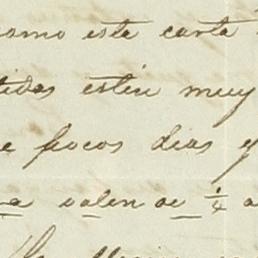 como esta carta
tidas estén muy
e pocos dias y
a valen de ¼ a